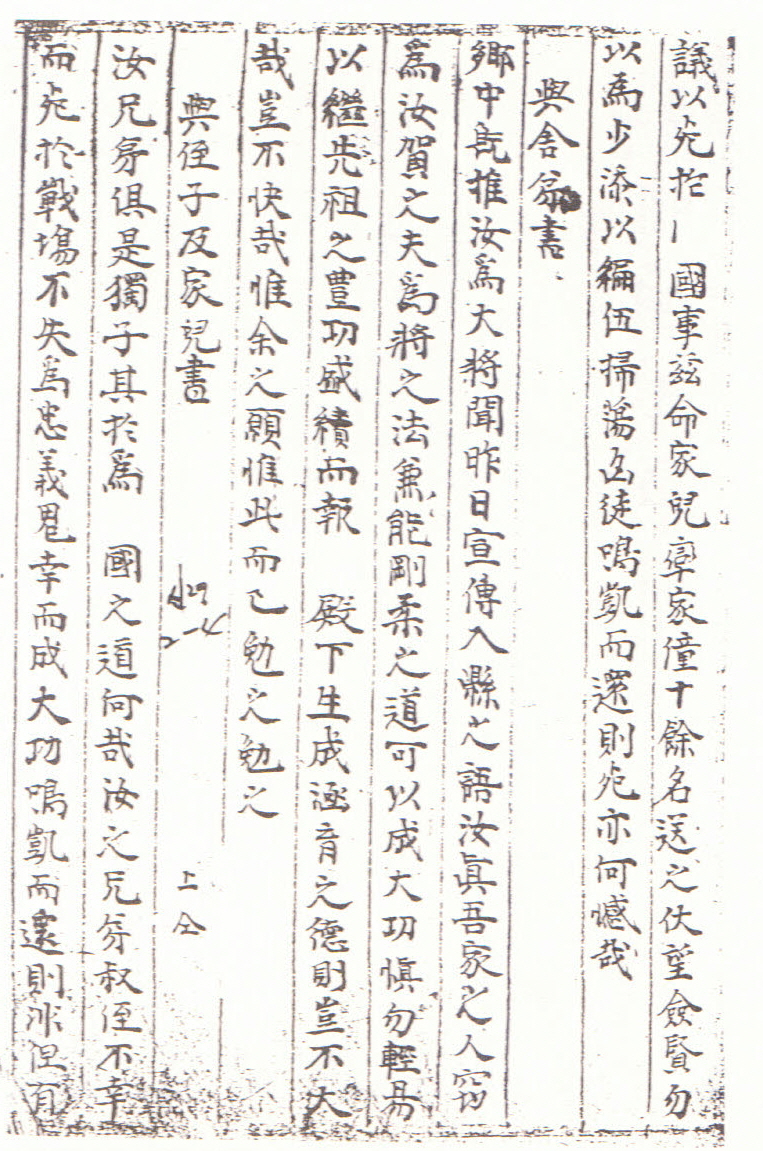 議以死於 國事玆命家兒率家僮十餘名送之伏望僉賢勿
以爲少添以編伍掃蕩凶徒鳴凱而還則死亦何憾哉
與舍弟書
鄕中旣推汝爲大將聞昨日宣傳入縣之語汝眞吾家之人窃
爲汝賀之夫爲將之法兼能剛柔之道可以成大功愼勿輕易
以繼先祖之豊功盛績而報 殿下生成涵育之德則豈不大
哉豈不快哉惟余之願惟此而已勉之勉之
與侄子及家兒書
汝兄弟俱是獨子其於爲 國之道何哉汝之兄弟叔侄不幸
而死於戰場不失爲忠義鬼幸而成大功鳴凱而還則非但有